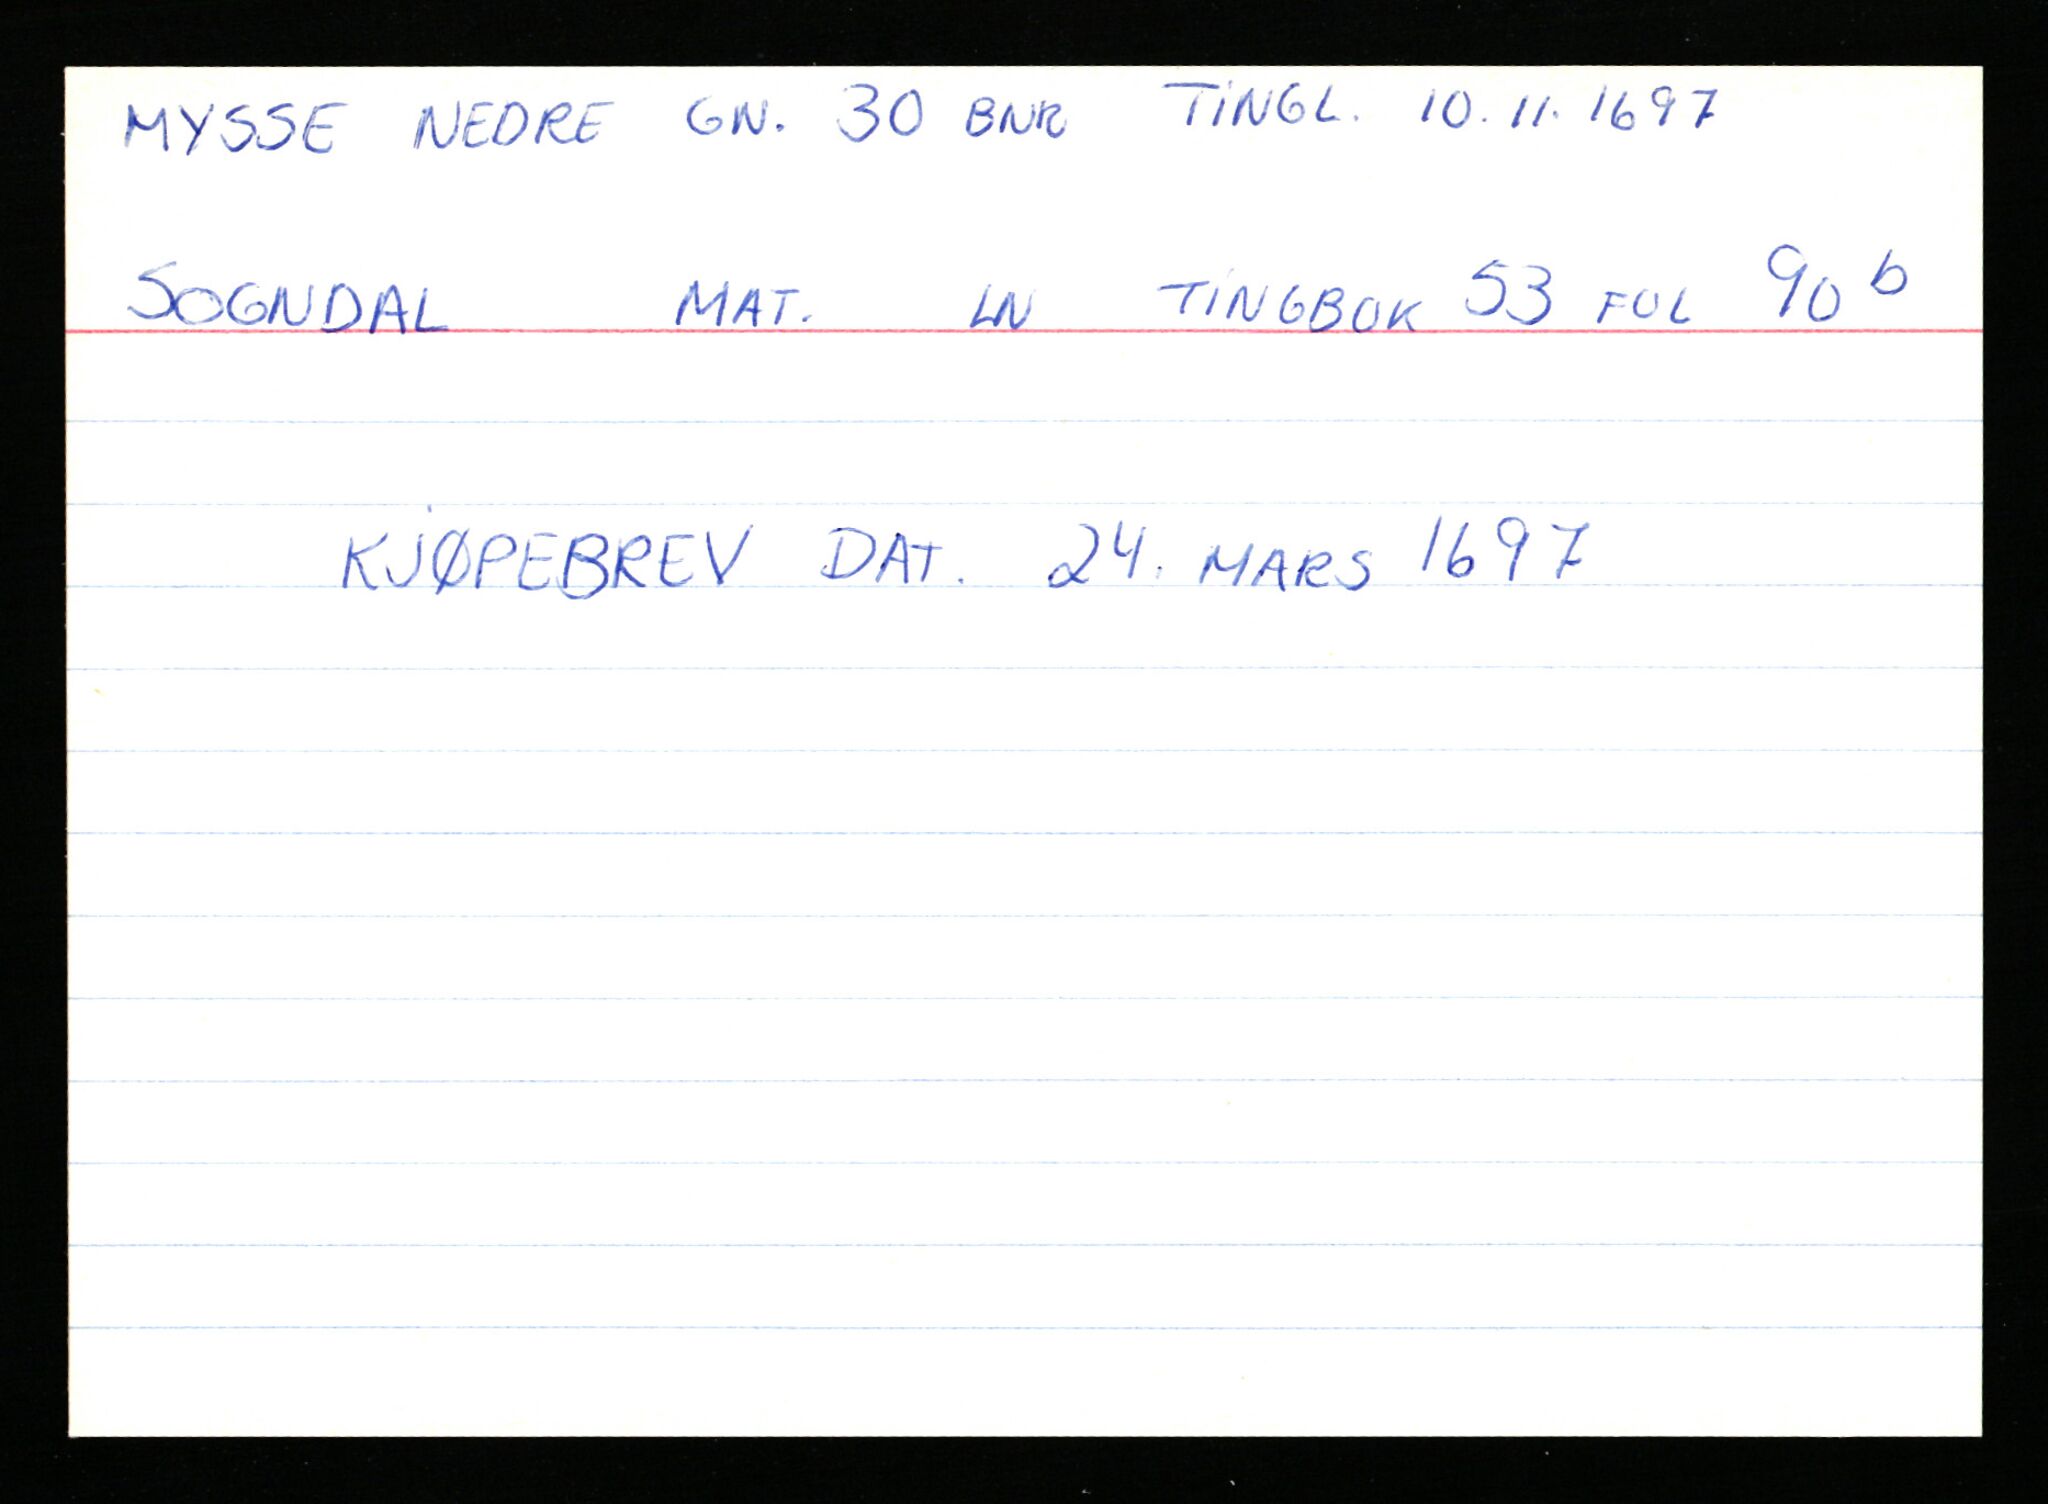 MYSSE NEDRE GN. 30 BNR TINGL. 10.11.1697
SOGNDAL MAT. LN TINGBOK 53 FOL 90 b
KJØPEBREV DAT. 24. MARS 1697